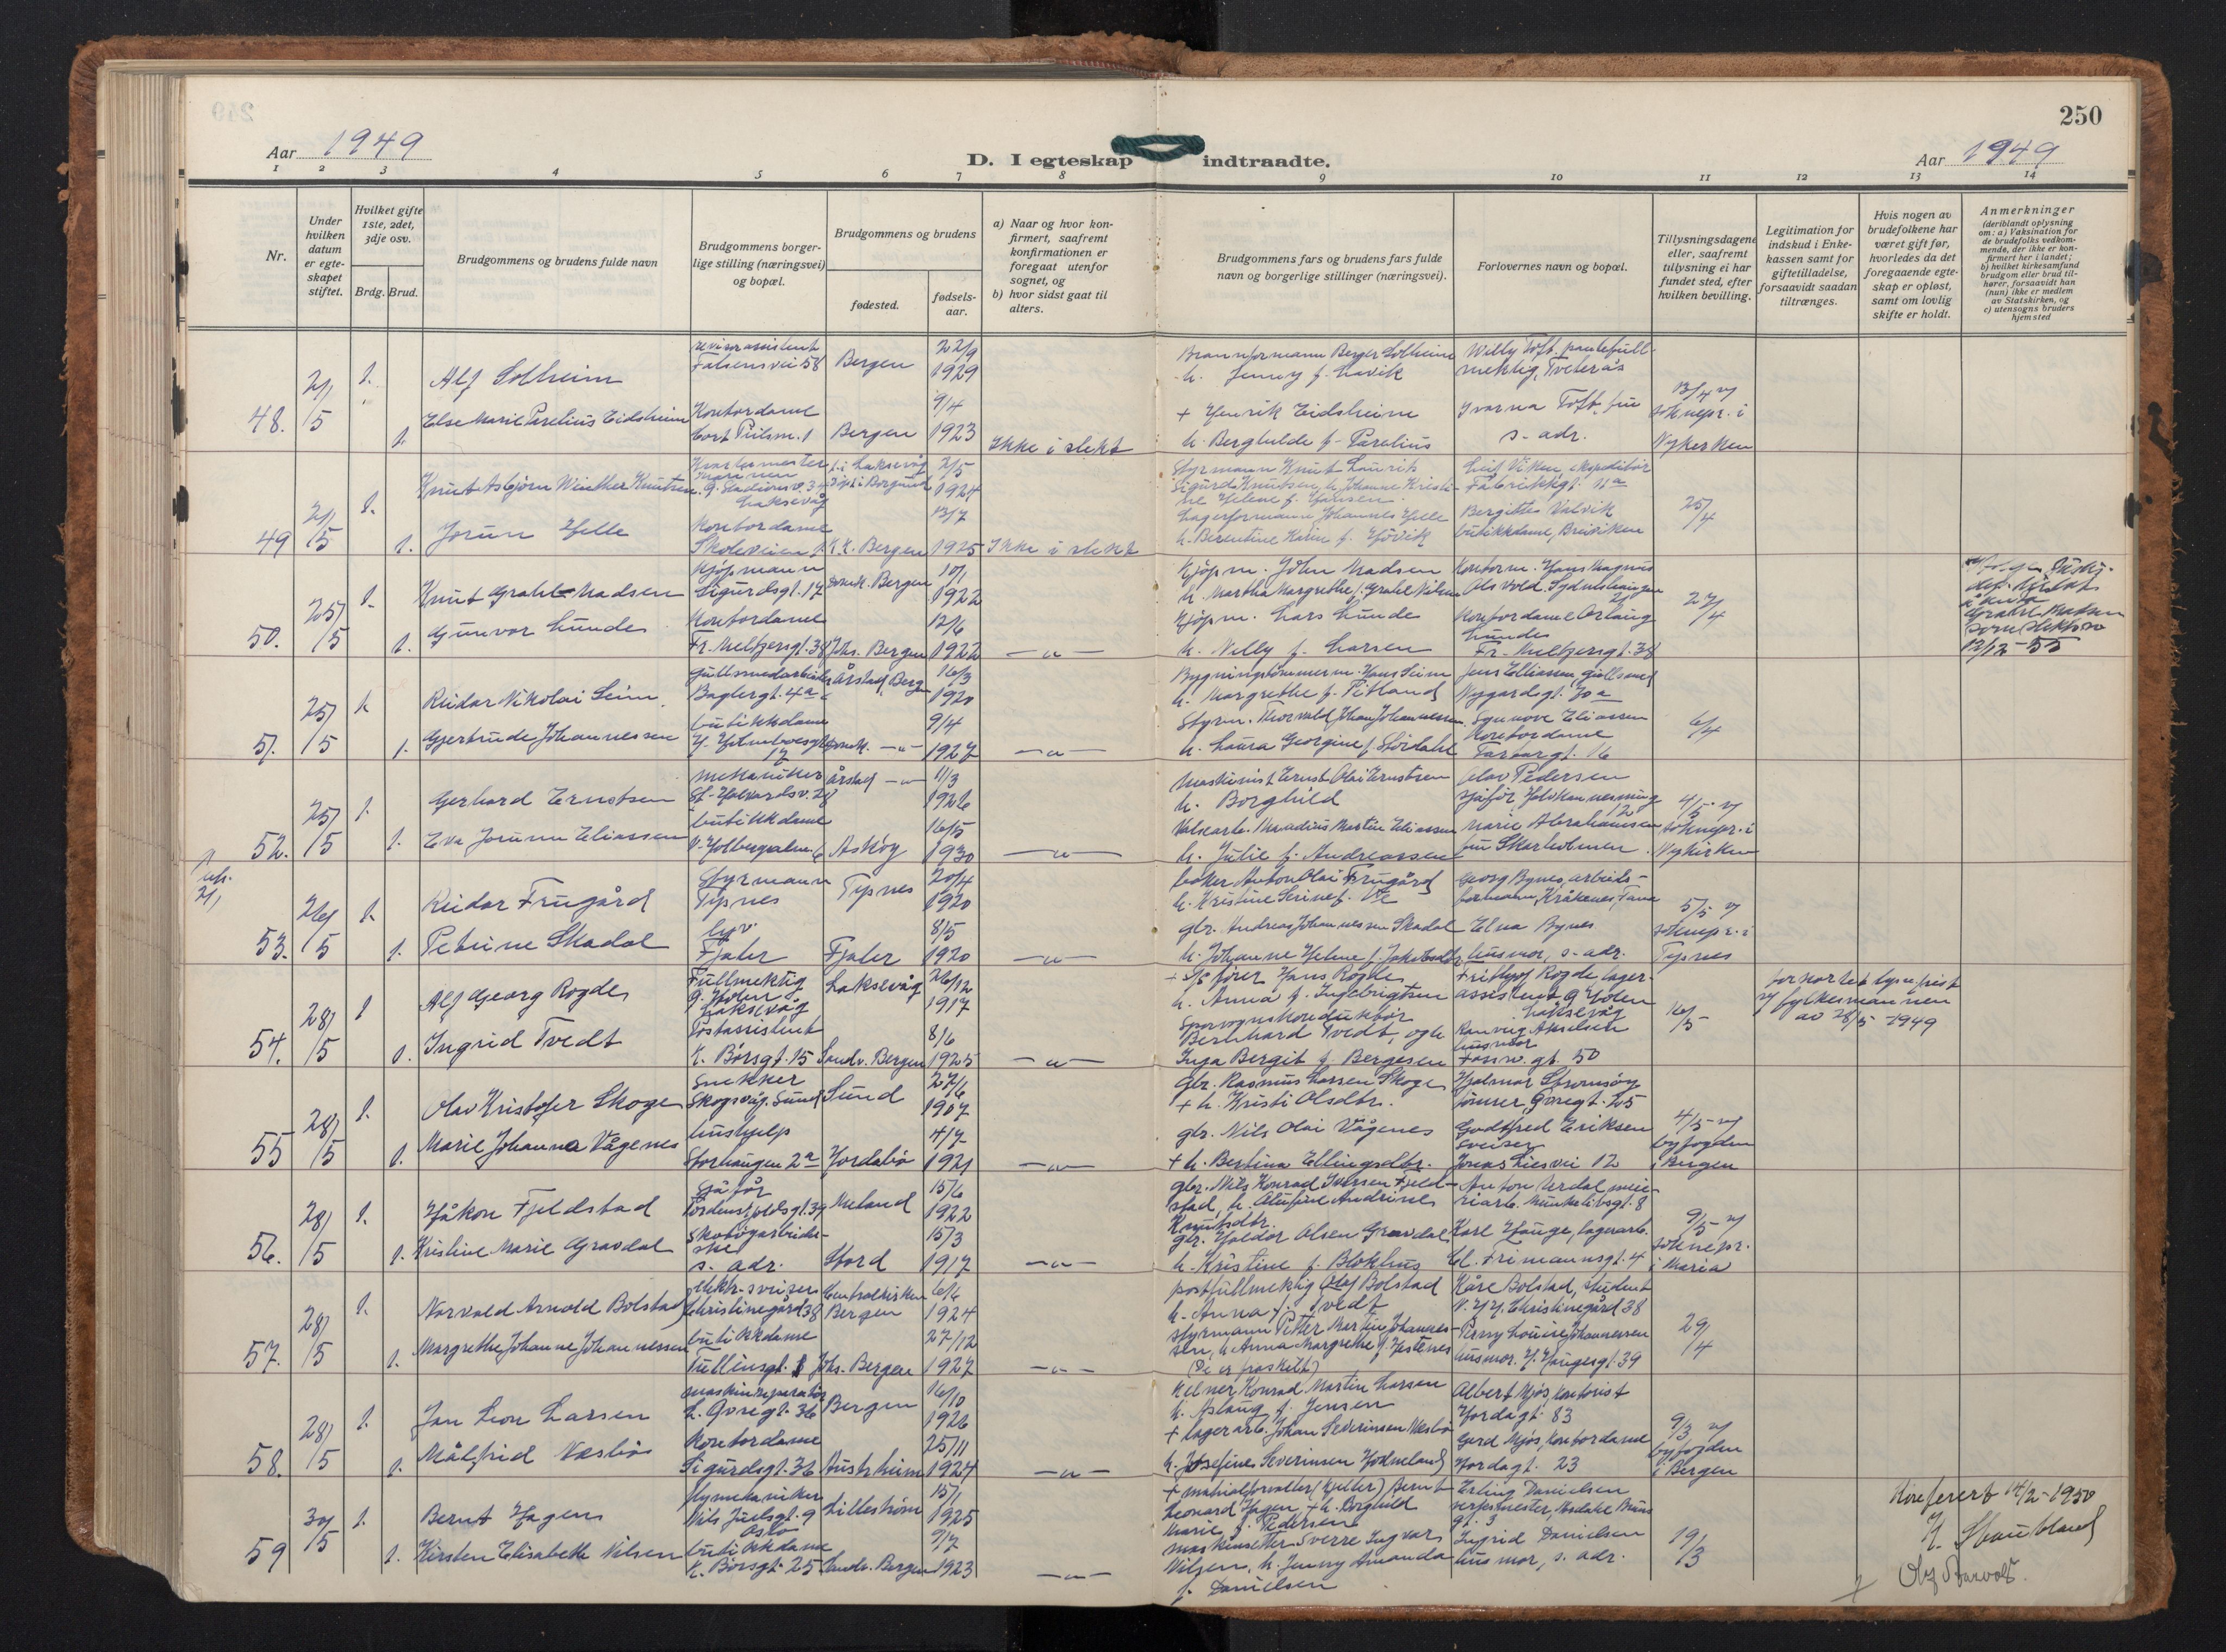 250
Aar 1949
D. I egteskap indtraadte.
Aar 1949
1 2 3 4 5 6 7 8 9 10 11 12 13 14
Nr.
Under hvilken datum er egteskapet stiftet.
Hvilket gifte 1ste, 2det, 3dje osv.
Brdg. Brud.
Brudgommens og brudens fulde navn
Brudgommens borgerlige stilling (næringsvei) og bopæl.
Brudgommens og brudens
fødested.
fødselsaar.
a) Naar og hvor konfirmert, saafremt konfirmationen er foregaat utenfor sognet, og
b) hvor sidst gaat til alters.
Brudgommens fars og brudens fars fulde navn og borgerlige stillinger (næringsvei).
Forlovernes navn og bopæl.
Tillysningsdagene eller, saafremt tillysning ei har fundet sted, efter hvilken bevilling.
Legitimation for indskud i Enkekassen samt for giftetilladelse, forsaavidt saadan tiltrænges.
Hvis nogen av brudefolkene har været gift før, hvorledes da det foregaaende egteskap er opløst, samt om lovlig skifte er holdt.
Anmerkninger
(deriblandt oplysning om: a) Vaksination for de brudefolks vedkommende, der ikke er konfirmert her i landet; b) hvilket kirkesamfund brudgom eller brud tilhører, forsaavidt han (hun) ikke er medlem av Statskirken, og c) utensogns bruders hjemsted
48. 21/5 1. Alf Solheim revisorassistent Falsensvei 58 Bergen 22/9 1929
Brannformann Berger Solheim
h. Jenny f. Lavik
Willy Toft
mektig, Tveterås
1. Else Marie Parelius Eidsheim Kontordame Cort Piilsm. 1 Bergen 9/4 1923 Ikke i slekt
+ Henrik Eidsheim
h. Berghilde f. Parelius
Ivarna Toft, fru
s. adr.
13/4 v/ soknepr. i Nykirken
49 21/5 1. Knut Asbjørn Winther Knutsen Kvartermester Laksevåg 2/5 1924
Styrmann Knut Laurits
Sigurd Knutsen, h. Johanne Kristine Helene f. Hansen.
Leif Viken, ekspeditør
Fabrikkgt. 11a
1. Jorun Helle Kontordame Skoleveien 1. K.K. Bergen 13/7 1925 Ikke i slekt
Lagerformann Johannes Helle
h. Berentine Karin f. Hövik
Bergittes Valvik
butikkdame, Breiviken
25/4
50. 25/5 1. Knut Grahl-Madsen Kjøpmann Sigurdsgt. 17 Domk. Bergen 10/1 1922
Kjøpm. John Madsen
h. Martha Margrethe f. Grahl Nilsen
Kontorm. Hans Magnus
1. Gunvor Lunde Kontordame Fr. Meltzersgt. 38 Joh. Bergen 12/6 1922 —"—
Kjøpm. Lars Lunde
h. Nelly f. Larsen
Kontordame Aslaug Lunde
Fr. Meltzersgt. 38
27/4
Grahl-Madsen
som slektsn
12/12-55
51. 25/5 1. Reidar Nikolai Seim gullsmedarbeider Baglergt. 4a Årstad, Berg. 16/3 1920
Bygningstømmerm. Hans Seim
h. Margrethe f. Titland
Jens Elliassen, gullsmed
Nygårdsgt. 70a
1. Gjertrude Johannessen butikkdame Domk. —"— 9/4 1927 —"—
Styrm. Thorvald Johan Johannessen
h. Laura Georgine f. Stördahl
Synnøve Eliassen
Kontordame
16
6/4
52. 25/5 1. Gerhard Ernstsen mekaniker St. Halvardsv. 28 Årstad —"— 11/3 1926
Maskinist Ernst Olai Ernstsen
h. Borghild
Olav Pedersen
sjåfør
1. Eva Jorunn Eliassen butikkdame V. Holbergsalm. 6 Askøy 16/5 1930 —"—
Martin Eliassen
h. Julie f. Andreassen
Marie Abrahamsen
fru Skarholmen
4/5 v/ soknepr. i Nykirken
53. 26/5 1. Reidar Frugård Styrmann Tysnes Tysnes 20/4 1920
baker Anton Olai Frugård
h. Kristine Serine f. Vie
Georg Bynes, arbeidsformann, Kråkenes, Fana
1. Petrine Skadal Fjaler Fjaler 8/5 1920 —"—
gbr. Andreas Johannessen Skadal
h. Johanne Helene f. Jakobsdtr
Elna Bynes
husmor, s. adr.
5/5 v/ soknepr. i Tysnes
54. 28/5 1 Alf Georg Rogde Fullmektig Laksevåg Laksevåg 26/12 1917
+ Hans Rogde
h. Anna f. Ingebrigtsen
Fritjof Rogde, lagerassistent
Laksevåg
1. Ingrid Tvedt Postassistent K. Börsgt. 15 Sandv. Bergen 8/6 1925 —"—
Sporvognskonduktør
Bernhard Tvedt, og h.
Inga Bergit f. Bergesen
Ranveig Akselsen
husmor
50
16/5
forkortet lysn. frist v/ fylkesmannen av 28/5 - 1949
55 28/5 1. Olav Kristofer Skoge Snekker Skogsvåg, Sund Sund 27/6 1907
Gbr. Rasmus Larsen Skoge
+ h. Kristi Olsdtr.
Hjalmar Strømsøy
Øvregt. 25
1. Marie Johanna Vågenes hushjelp Storhaugen 2a 4/7 1921 —"—
gbr. Nils Olai Vågenes
+ h. Bertina Ellingsdtr.
Godtfred Eriksen
sveiser
Jonas Liesvei 12
4/5 v/ byfogden i Bergen
56. 28/5 1. Håkon Fjeldstad Sjåfør Tordenskjoldsgt. 39 Meland 15/6 1922
gbr. Nils Konrad Iversen Fjeldstad, h. Olufine Andrine Knutsdtr.
Anton Urdal
Munkelivsgt. 8
1. Kristine Marie Gravdal s. adr. Stord 15/3 1917 —"—
gbr. Haldor Olsen Gravdal
h. Kristine f. Blokhus
Karl Hauge, lagerarb.
Cl. Frimannsgt. 4
9/5 v/ soknepr. i Maria
57. 28/5 1. Norvald Arnold Bolstad elektr. sveiser Christinegård 38 Bergen 6/6 1924
postfullmektig Olaf Bolstad
h. Anna f. Tvedt
Kåre Bolstad, student
Christinegård 38
1. Margrethe Johanne Johannessen butikkdame Tullinsgt. 1 Johs. Bergen 27/12 1927 —"—
styrmann Petter Martin Johannessen, h. Anna Margrethe f. Hestenes
(De er fraskilt)
Penny Louise Johannessen
husmor. H. Haugesgt. 39
29/4
58. 28/5 1. Jan Leon Larsen maskinreparatør L. Øvregt. 36 Bergen 16/10 1926
Kelner Konrad Martin Larsen
h. Aslaug f. Jensen
Albert Mjös, kontorist
Hordagt. 83
1. Målfrid Nesbø Kontordame Sigurdsgt. 36 Austrheim 25/11 1924 —"—
+ lagerarb. Johan Severinsen Nesbø
h. Josefines Severinsen
Gerd Mjös, kontordame
Hordagt. 23
9/3 v/ byfogden i Bergen
59 30/5 1. Bernt Hagen flymekaniker Nils Juelsgt. 9 Oslo Lilleström 15/1 1925
+ Bernt
Leonard Hagen + h. Borghild
Marie f. Pedersen
Erling Danielsen
1. Kirsten Elisabeth Nilsen butikkdame K. Börsgt. 25 Sandv. Bergen 9/7 1923 —"—
maskinsetter Sverre Ingvar
Nilsen, h. Jenny Amanda
f. Danielsen
Ingrid Danielsen
husmor, s. adr.
19/3
Konferert 14/2-1950